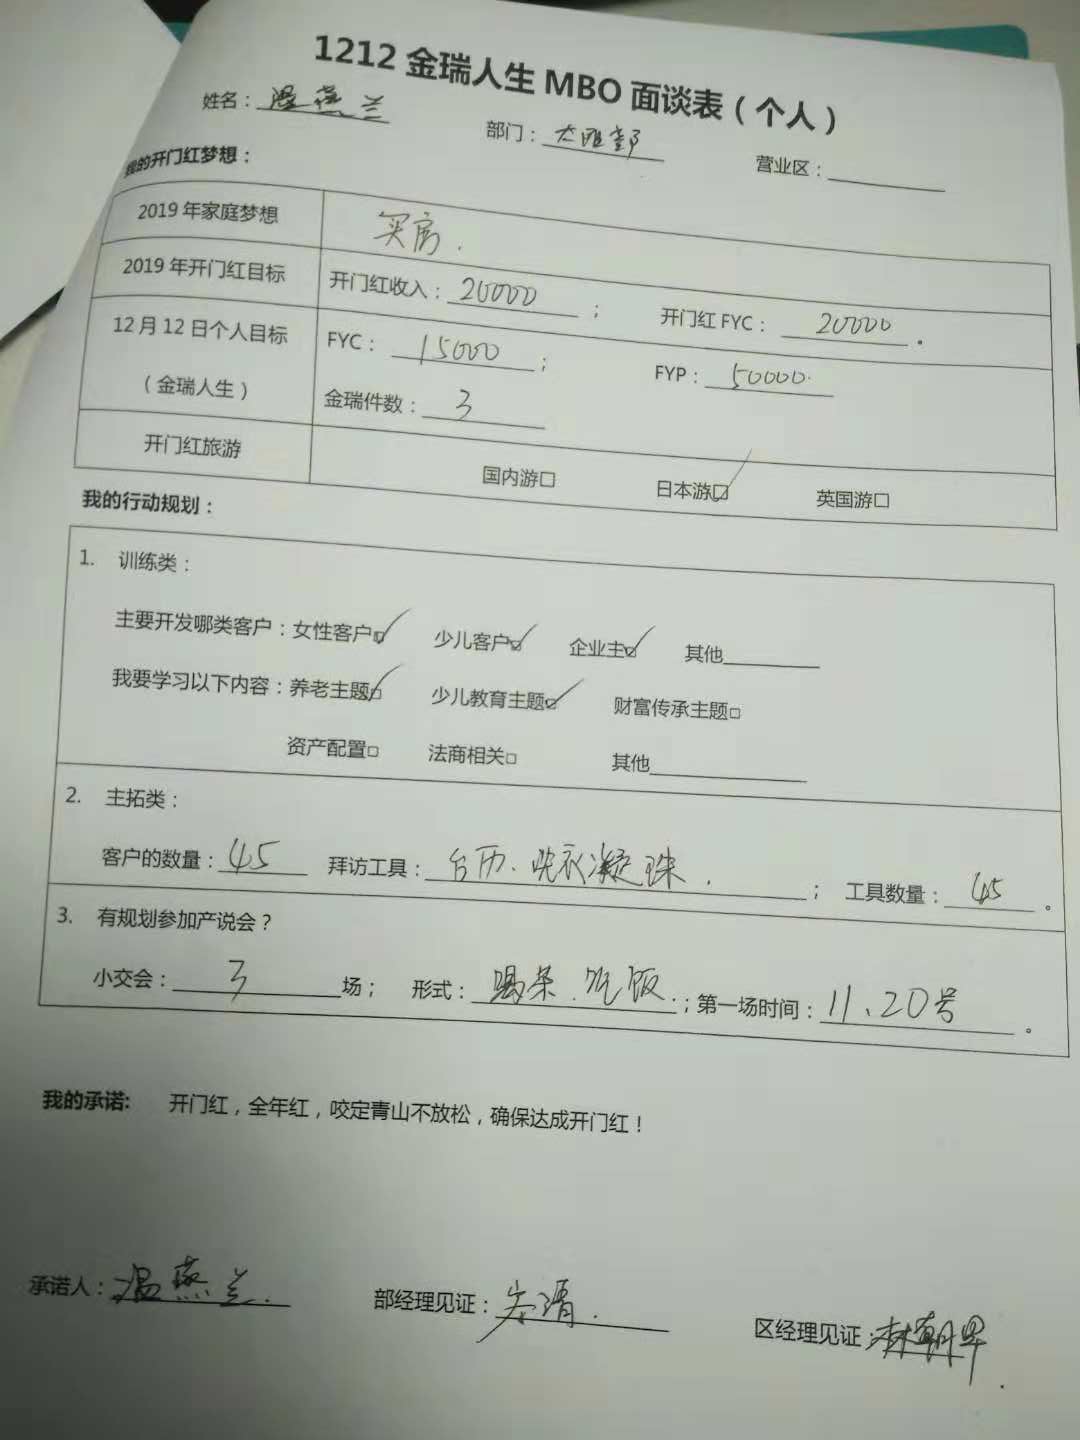 1212 金瑞人生 MBO 面谈表（个人）
姓名：温燕兰 部门： 营业区：
我的开门红梦想：
2019 年家庭梦想 买房.
2019 年开门红目标 开门红收入：20000； 开门红 FYC：20000。
12 月 12 日个人目标 FYC：15000； FYP：50000.
（金瑞人生） 金瑞件数：3
开门红旅游 国内游□ 日本游☑ 英国游□
我的行动规划：
1. 训练类：
主要开发哪类客户：女性客户☑ 少儿客户☑ 企业主☑ 其他
我要学习以下内容：养老主题☑ 少儿教育主题☑ 财富传承主题□
资产配置□ 法商相关□ 其他
2. 主拓类：
客户的数量：45 拜访工具：台历、洗衣凝珠.； 工具数量：45。
3. 有规划参加产说会？
小交会：3场； 形式：喝茶.吃饭.；第一场时间：11、20号。
我的承诺: 开门红，全年红，咬定青山不放松，确保达成开门红！
承诺人：温燕兰. 部经理见证： 区经理见证：